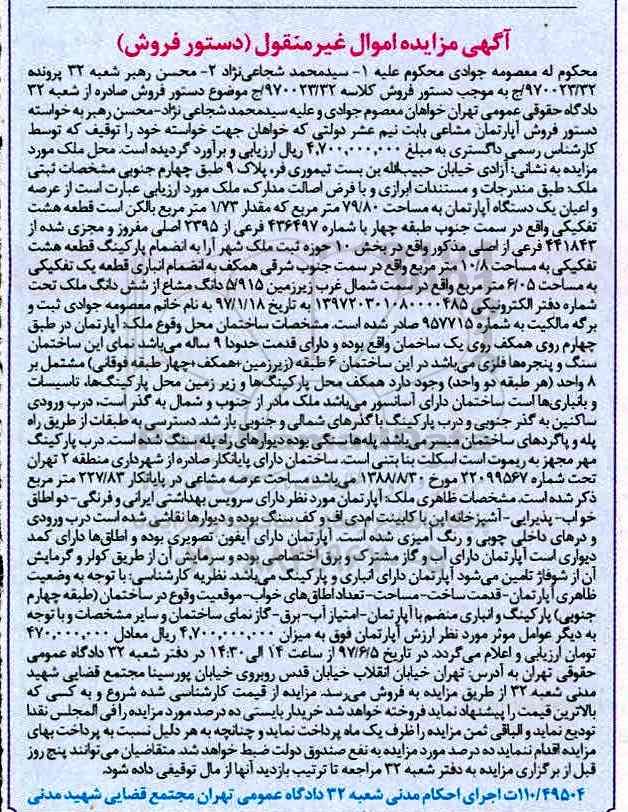 آگهی مزایده اموال غیرمنقول (دستور فروش)
محکوم له معصومه جوادی محکوم علیه ۱- سیدمحمد شجاعی‌نژاد ۲- محسن رهبر شعبه ۳۲ پرونده
۹۷۰۰۲۳/۳۲/ج به موجب دستور فروش کلاسه ۹۷۰۰۲۳/۳۲/ج موضوع دستور فروش صادره از شعبه ۳۲
دادگاه حقوقی عمومی تهران خواهان معصوم جوادی و علیه سیدمحمد شجاعی نژاد-محسن رهبر به خواسته
دستور فروش آپارتمان مشاعی بابت نیم عشر دولتی که خواهان جهت خواسته خود را توقیف که توسط
کارشناس رسمی داگستری به مبلغ ۴,۷۰۰,۰۰۰,۰۰۰ ریال ارزیابی و برآورد گردیده است. محل ملک مورد
مزایده به نشانی: آزادی خیابان حبیب‌الله بن بست تیموری فر، پلاک ۹ طبق چهارم جنوبی مشخصات ثبتی
ملک: طبق مندرجات و مستندات ابرازی و با فرض اصالت مدارک، ملک مورد ارزیابی عبارت است از عرصه
و اعیان یک دستگاه آپارتمان به مساحت ۷۹/۸۰ متر مربع که مقدار ۱/۷۳ متر مربع بالکن است قطعه هشت
تفکیکی واقع در سمت جنوب طبقه چهار با شماره ۴۳۶۴۹۷ فرعی از ۲۳۹۵ اصلی مفروز و مجزی شده از
۴۴۱۸۴۳ فرعی از اصلی مذکور واقع در بخش ۱۰ حوزه ثبت ملک شهر آرا به انضمام پارکینگ قطعه هشت
تفکیکی به مساحت ۱۰/۸ متر مربع واقع در سمت جنوب شرقی همکف به انضمام انباری قطعه یک تفکیکی
به مساحت ۶/۰۵ متر مربع واقع در سمت شمال غرب زیرزمین ۵/۹۱۵ دانگ مشاع از شش دانگ ملک تحت
شماره دفتر الکترونیکی ۱۳۹۷۲۰۳۰۱۰۸۰۰۰۰۴۸۵ به تاریخ ۹۷/۱/۱۸ به نام خانم معصومه جوادی ثبت و
برگه مالکیت به شماره ۹۵۷۷۱۵ صادر شده است. مشخصات ساختمان محل وقوع ملک: آپارتمان در طبق
چهارم روی همکف روی یک ساخمان واقع بوده و دارای قدمت حدودا ۹ ساله می‌باشد نمای این ساختمان
سنگ و پنجره‌ها فلزی می‌باشد در این ساختمان ۶ طبقه (زیرزمین+همکف+چهار طبقه فوقانی) مشتمل بر
۸ واحد (هر طبقه دو واحد) وجود دارد همکف محل پارکینگ‌ها و زیر زمین محل پارکینگ‌ها، تاسیسات
و بانباری‌ها است ساختمان دارای آسانسور می‌باشد ملک مادر از جنوب و شمال به گذر است، درب ورودی
ساکنین به گذر جنوبی و درب پارکینگ با گذرهای شمالی و جنوبی باز شد. دسترسی به طبقات از طریق راه
پله و پاگردهای ساختمان میسر می‌باشد. پله‌ها سنگی بوده دیوارهای راه پله سنگ شده است. درب پارکینگ
مهر مجهز به ریموت است اسکلت بنا بتنی است. ساختمان دارای پایانکار صادره از شهرداری منطقه ۲ تهران
تحت شماره ۲۲۰۹۹۵۶۷ مورخ ۱۳۸۸/۸/۳۰ می‌باشد مساحت عرصه مشاعی در پایانکار ۲۲۷/۸۳ متر مربع
ذکر شده است. مشخصات ظاهری ملک: آپارتمان مورد نظر دارای سرویس بهداشتی ایرانی و فرنگی- دو اطاق
خواب- پذیرایی- آشپزخانه اپن با کابینت ام‌دی‌اف و کف سنگ بوده و دیوارها نقاشی شده است درب ورودی
و درهای داخلی چوبی و رنگ آمیزی شده است. آپارتمان دارای آیفون تصویری بوده و اطاق‌ها دارای کمد
دیواری است آپارتمان دارای آب و گاز مشترک و برق اختصاصی بوده و سرمایش آن از طریق کولر و گرمایش
آن از شوفاژ تامین می‌شود آپارتمان دارای انباری و پارکینگ می‌باشد. نظریه کارشناسی: با توجه به وضعیت
ظاهری آپارتمان- قدمت ساخت- مساحت- تعداد اطاق‌های خواب- موقعیت وقوع در ساختمان (طبقه چهارم
جنوبی) پارکینگ و انباری منضم با آپارتمان- امتیاز آب- برق- گاز نمای ساختمان و سایر مشخصات و با توجه
به دیگر عوامل موثر مورد نظر ارزش آپارتمان فوق به میزان ۴,۷۰۰,۰۰۰,۰۰۰ ریال معادل ۴۷۰,۰۰۰,۰۰۰
تومان ارزیابی و اعلام می‌گردد. در تاریخ ۹۷/۶/۵ از ساعت ۱۴ الی ۱۴:۳۰ در دفتر شعبه ۳۲ دادگاه عمومی
حقوقی تهران به آدرس: تهران خیابان انقلاب خیابان قدس روبروی خیابان پورسینا مجتمع قضایی شهید
مدنی شعبه ۳۲ از طریق مزایده به فروش می‌رسد. مزایده از قیمت کارشناسی شده شروع و به کسی که
بالاترین قیمت را پیشنهاد نماید فروخته خواهد شد خریدار بایستی ده درصد مورد مزایده را فی المجلس نقدا
تودیع نماید و الباقی ثمن مزایده را ظرف یک ماه پرداخت نماید و چنانچه به هر دلیل نسبت به پرداخت بهای
مزایده اقدام ننماید ده درصد مورد مزایده به نفع صندوق دولت ضبط خواهد شد. متقاضیان می‌توانند پنج روز
قبل از برگزاری مزایده به دفتر شعبه ۳۲ مراجعه تا ترتیب بازدید آنها از مال توقیفی داده شود.
۱۱۰/۴۹۵۰۴ت اجرای احکام مدنی شعبه ۳۲ دادگاه عمومی تهران مجتمع قضایی شهید مدنی